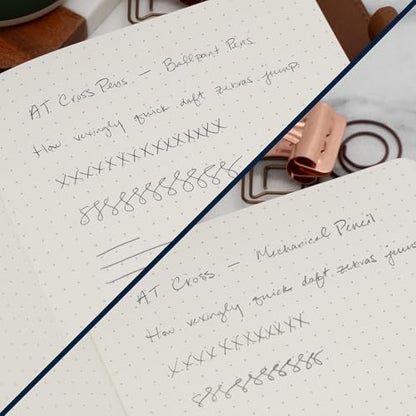 AT Cross Pens — Ballpoint Pens
How vexingly quick daft zebras jump.
XXXXXXXXXXXXXXX
8888888888888
AT Cross — Mechanical Pencil
How vexingly quick daft zebras jump
XXXXXXXXXXXX
88888888888